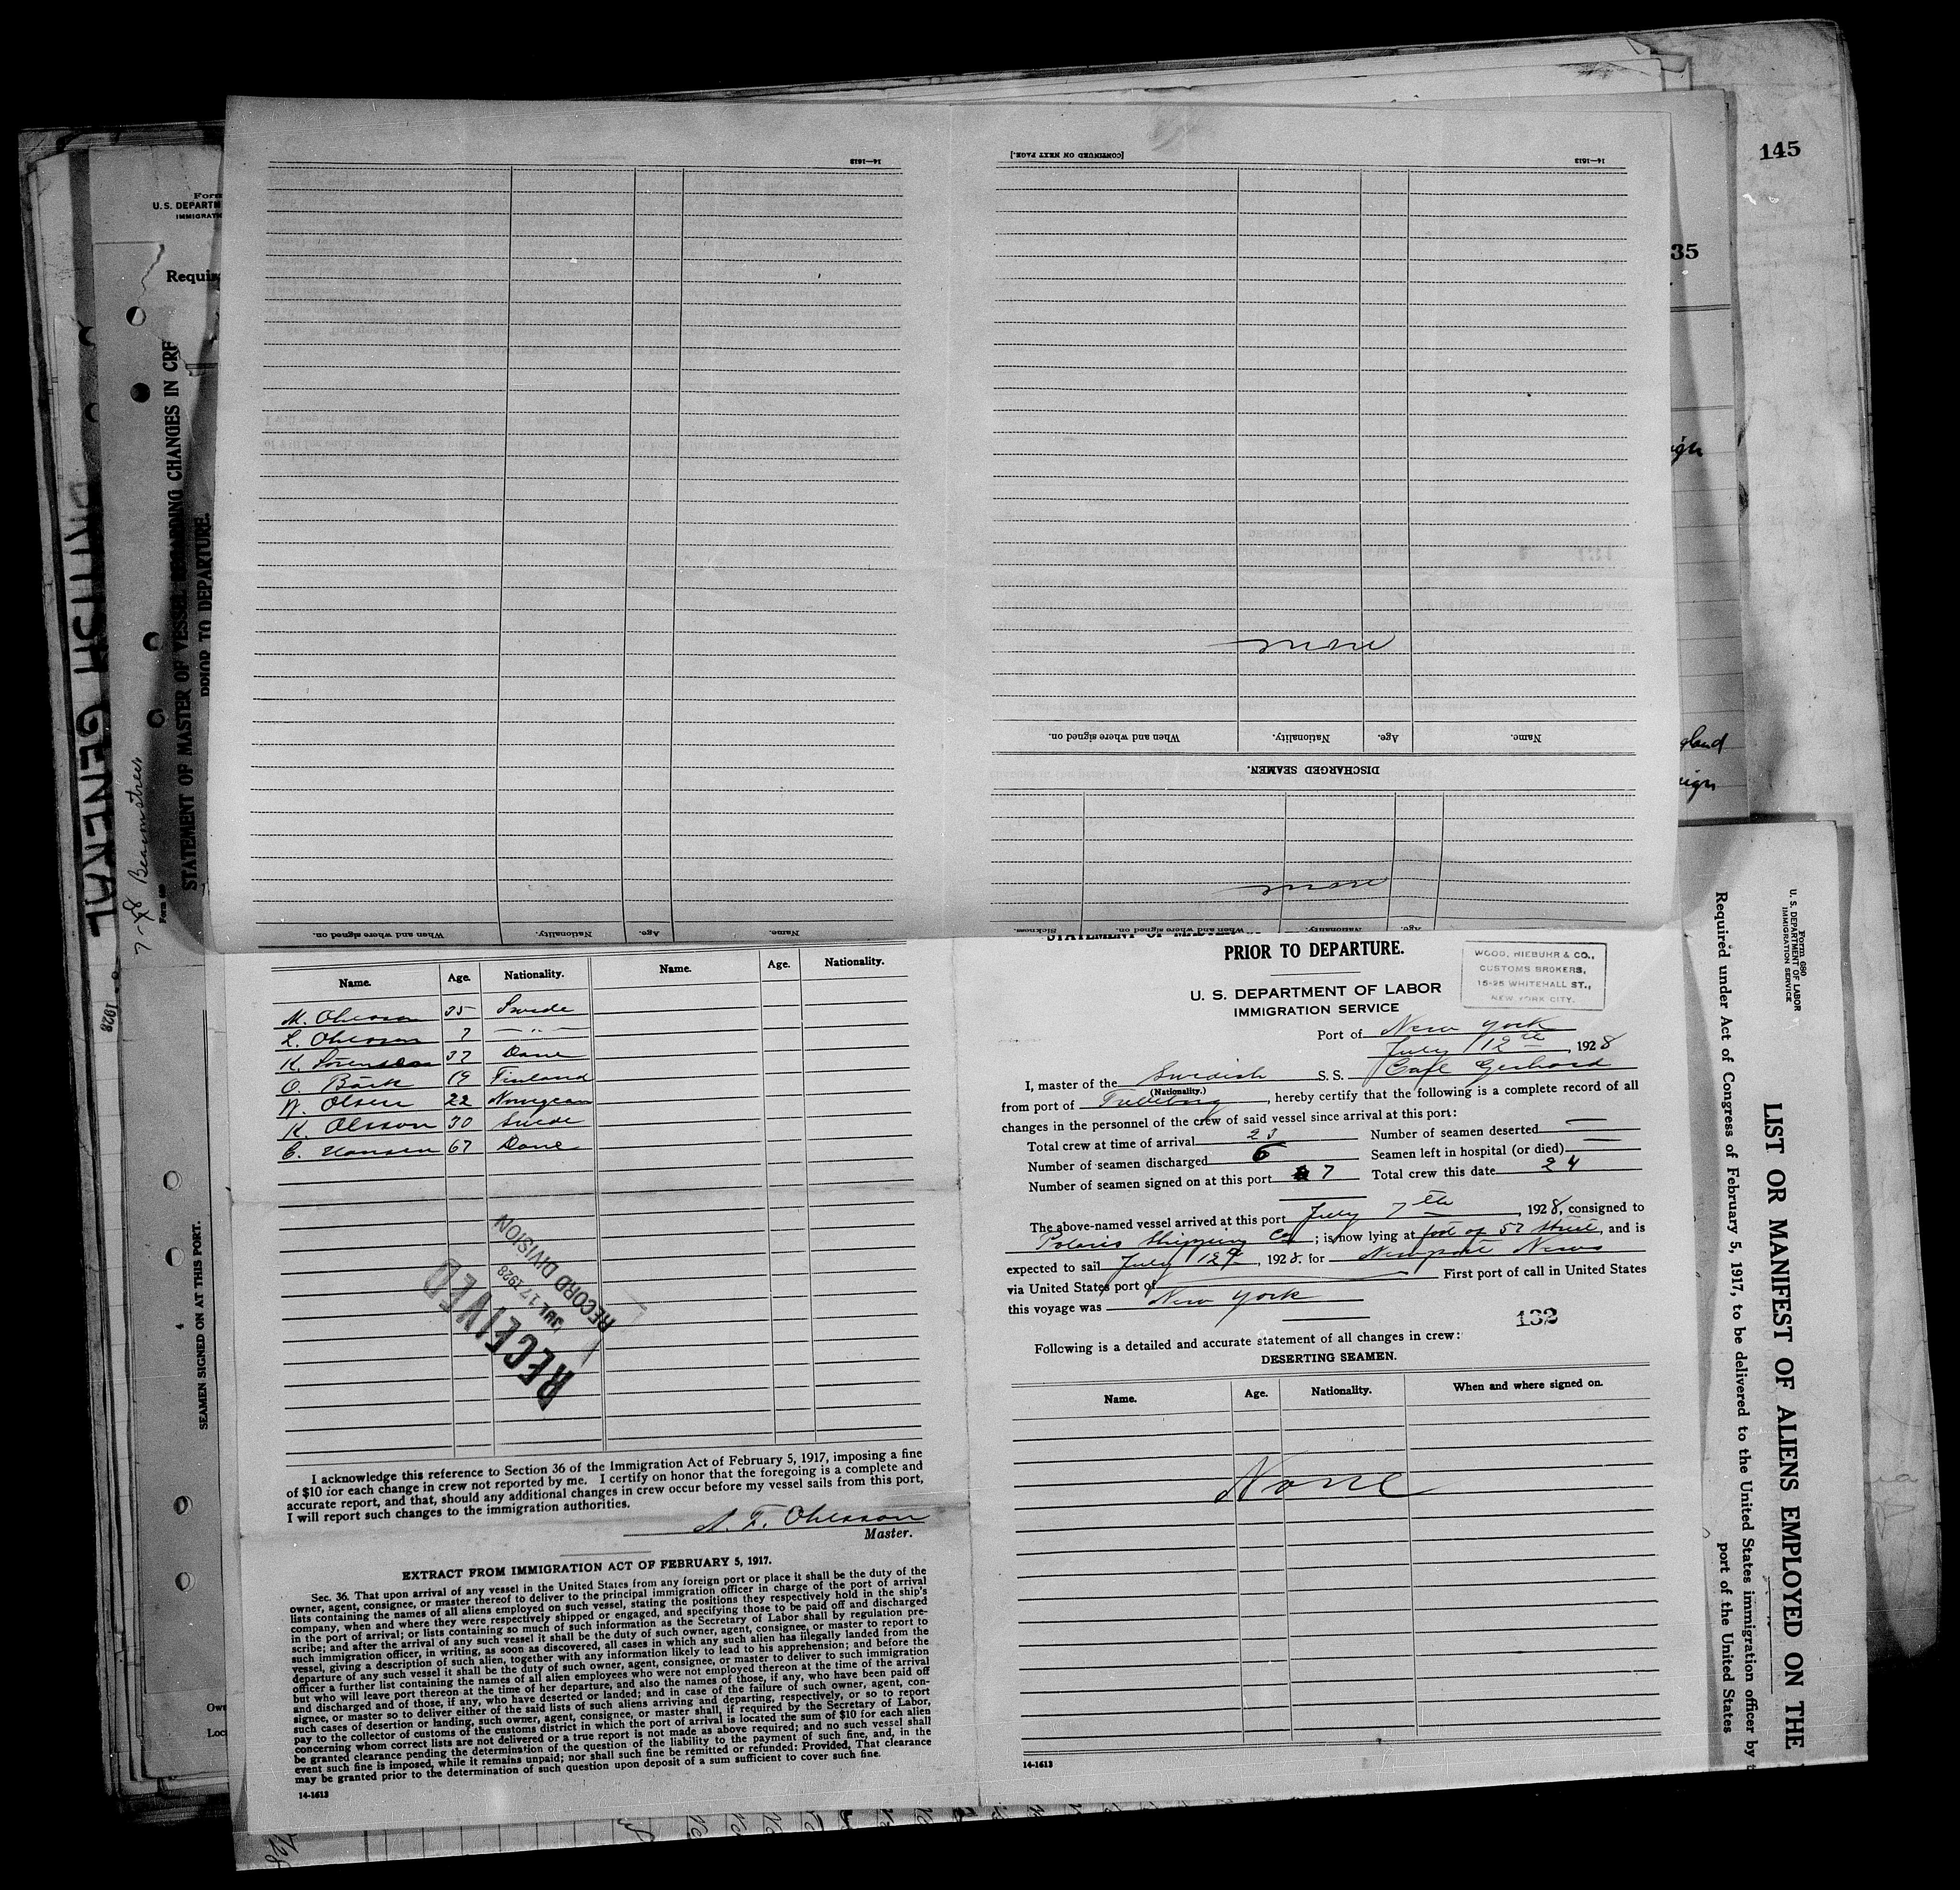 145
35
Form
U. S. DEPARTM
IMMIGRATI
Requir
STATEMENT OF MASTER OF VESSEL REGARDING CHANGES IN CRE
PRIOR TO DEPARTURE.
BRITISH GENERAL
1928
SEAMEN SIGNED ON AT THIS PORT.
Own
Loc
14—1613
When and where signed on.
Nationality.
Age.
Name.
14—1613
[CONTINUED ON NEXT PAGE.]
Name.
Age.
Nationality.
When and where signed on.
DISCHARGED SEAMEN.
Age.
Nationality.
When and where signed on.
Sickness.
Name. Age. Nationality. Name. Age. Nationality.
M. Ohlsson 35 Swede
L. Ohlsson 7 — " —
K. Sorensen 37 Dane
O. Bäck 19 Finland
W. Olsen 22 Norwgean
K. Olsson 30 Swede
C. Hansen 67 Dane
RECEIVED
JUL 17 1928
RECORD DIVISION
I acknowledge this reference to Section 36 of the Immigration Act of February 5, 1917, imposing a fine
of $10 for each change in crew not reported by me. I certify on honor that the foregoing is a complete and
accurate report, and that, should any additional changes in crew occur before my vessel sails from this port,
I will report such changes to the immigration authorities.
A. F. Ohlsson
Master.
EXTRACT FROM IMMIGRATION ACT OF FEBRUARY 5, 1917.
Sec. 36. That upon arrival of any vessel in the United States from any foreign port or place it shall be the duty of the
owner, agent, consignee, or master thereof to deliver to the principal immigration officer in charge of the port of arrival
lists containing the names of all aliens employed on such vessel, stating the positions they respectively hold in the ship's
company, when and where they were respectively shipped or engaged, and specifying those to be paid off and discharged
in the port of arrival; or lists containing so much of such information as the Secretary of Labor shall by regulation pre-
scribe; and after the arrival of any such vessel it shall be the duty of such owner, agent, consignee, or master to report to
such immigration officer, in writing, as soon as discovered, all cases in which any such alien has illegally landed from the
vessel, giving a description of such alien, together with any information likely to lead to his apprehension; and before the
departure of any such vessel it shall be the duty of such owner, agent, consignee, or master to deliver to such immigration
officer a further list containing the names of all alien employees who were not employed thereon at the time of the arrival
but who will leave port thereon at the time of her departure, and also the names of those, if any, who have been paid off
and discharged and of those, if any, who have deserted or landed; and in case of the failure of such owner, agent, con-
signee, or master so to deliver either of the said lists of such aliens arriving and departing, respectively, or so to report
such cases of desertion or landing, such owner, agent, consignee, or master shall, if required by the Secretary of Labor,
pay to the collector of customs of the customs district in which the port of arrival is located the sum of $10 for each alien
concerning whom correct lists are not delivered or a true report is not made as above required; and no such vessel shall
be granted clearance pending the determination of the question of the liability to the payment of such fine, and, in the
event such fine is imposed, while it remains unpaid; nor shall such fine be remitted or refunded: Provided, That clearance
may be granted prior to the determination of such question upon deposit of a sum sufficient to cover such fine.
14-1613
PRIOR TO DEPARTURE.
WOOD, NIEBUHR & CO.,
CUSTOMS BROKERS,
15-25 WHITEHALL ST.,
NEW YORK CITY.
U. S. DEPARTMENT OF LABOR
IMMIGRATION SERVICE
Port of New York
July 12th, 1928
I, master of the Swedish S. S. Carl Gerhard
(Nationality.)
from port of Trelleborg, hereby certify that the following is a complete record of all
changes in the personnel of the crew of said vessel since arrival at this port:
Total crew at time of arrival 23 Number of seamen deserted —
Number of seamen discharged 6 Seamen left in hospital (or died) —
Number of seamen signed on at this port 7 Total crew this date 24
The above-named vessel arrived at this port July 7th, 1928, consigned to
Polaris Shipping Co; is now lying at foot of 57 Street, and is
expected to sail July 12th, 1928, for Newport News
via United States port of — First port of call in United States
this voyage was New York
132
Following is a detailed and accurate statement of all changes in crew:
DESERTING SEAMEN.
Name. Age. Nationality. When and where signed on.
None
14-1613
Form 680
U. S. DEPARTMENT OF LABOR
IMMIGRATION SERVICE
LIST OR MANIFEST OF ALIENS EMPLOYED ON THE
Required under Act of Congress of February 5, 1917, to be delivered to the United States immigration officer by t
port of the United States